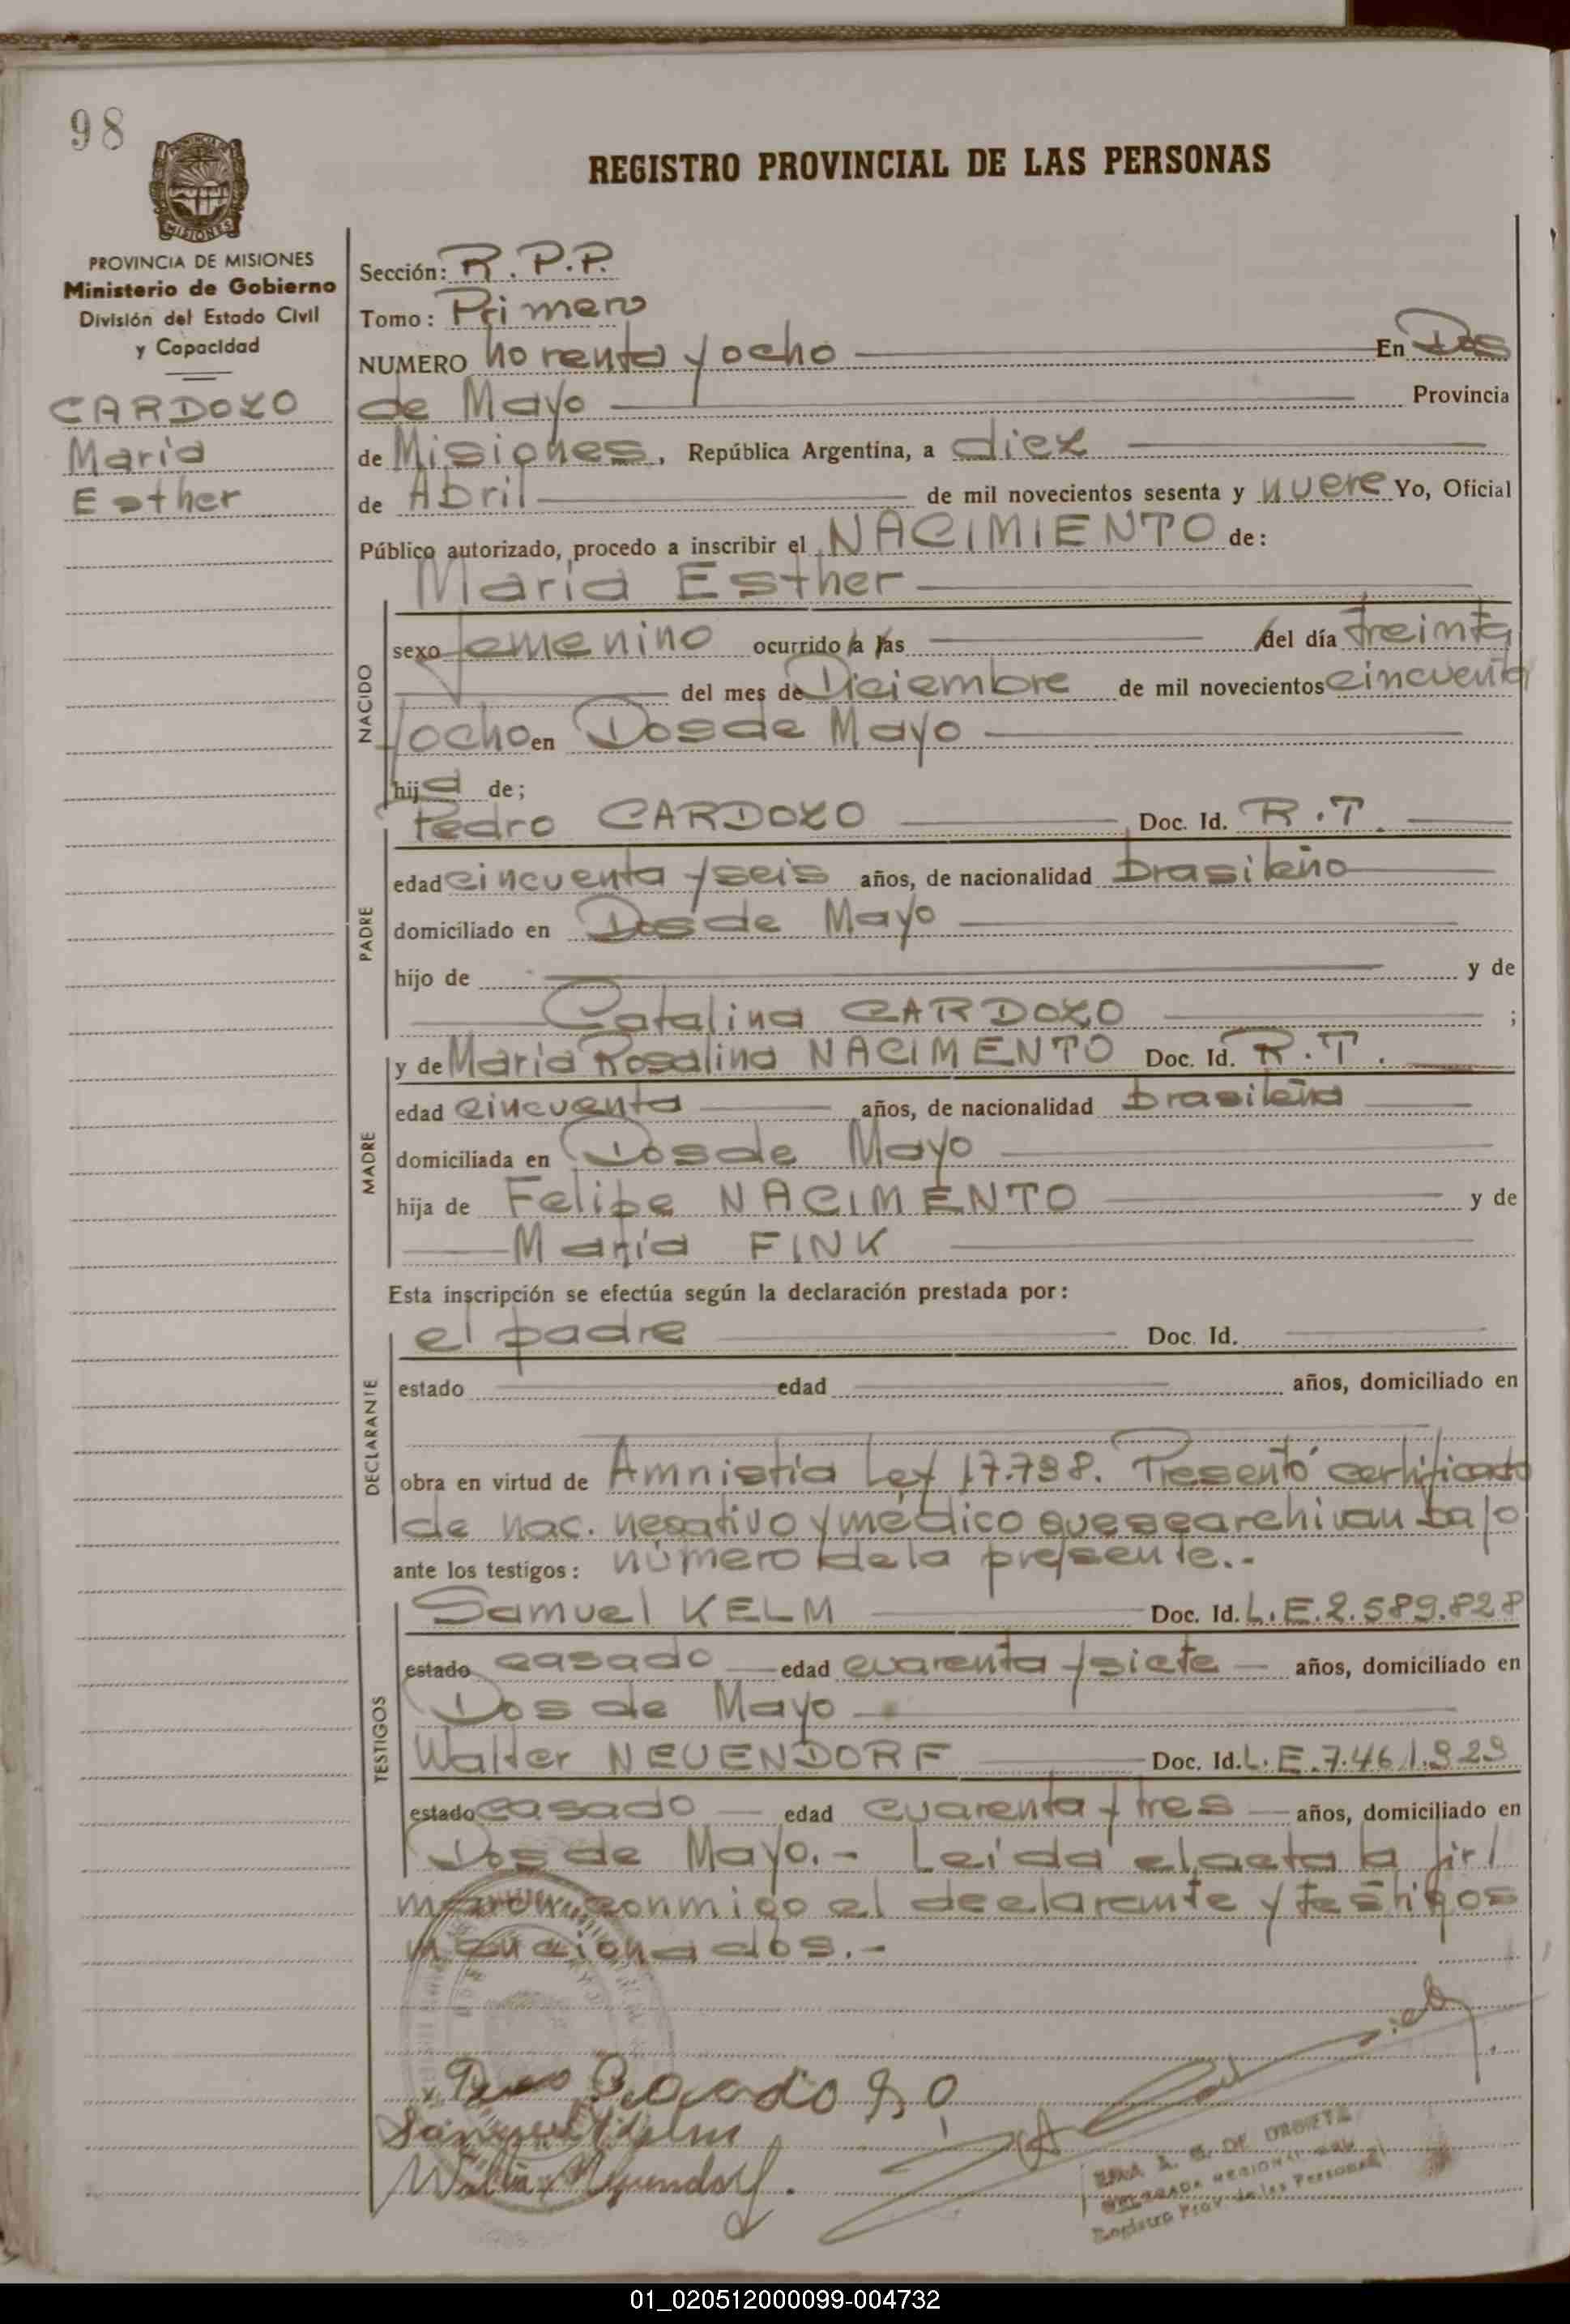 98
REGISTRO PROVINCIAL DE LAS PERSONAS
MISIONES
PROVINCIA DE MISIONES
Ministerio de Gobierno
División del Estado Civil
y Capacidad
CARDOZO
María
Esther
Sección: R.P.P.
Tomo: Primero
NUMERO noventa y ocho En Dos
de Mayo Provincia
de Misiones, República Argentina, a diez
de Abril de mil novecientos sesenta y nueve Yo, Oficial
Público autorizado, procedo a inscribir el NACIMIENTO de:
María Esther
NACIDO
sexo femenino ocurrido a las del día treinta
del mes de Diciembre de mil novecientos cincuenta
y ocho en Dos de Mayo
hija de;
PADRE
Pedro CARDOZO Doc. Id. R.T.
edad cincuenta y seis años, de nacionalidad brasileño
domiciliado en Dos de Mayo
hijo de y de
Catalina CARDOZO ;
MADRE
y de María Rosalina NACIMENTO Doc. Id. R.T.
edad cincuenta años, de nacionalidad brasileña
domiciliada en Dos de Mayo
hija de Felipe NACIMENTO y de
María FINK
Esta inscripción se efectúa según la declaración prestada por:
DECLARANTE
el padre Doc. Id.
estado edad años, domiciliado en
obra en virtud de Amnistía Ley 17.798. Presentó certificado
de nac. negativo y médico que se archivan bajo
ante los testigos: número de la presente.-
TESTIGOS
Samuel KELM Doc. Id. L.E.2.589.828
estado casado edad cuarenta y siete años, domiciliado en
Dos de Mayo
Walter NEUENDORF Doc. Id. L.E.7.461.929
estado casado edad cuarenta y tres años, domiciliado en
Dos de Mayo.- Leída el acta la fir/
maron conmigo el declarante y testigos
mencionados.-
Samuel Kelm
Walter Neuendorf.
DE URBIETA
Registro Prov. de las Personas
01_020512000099-004732